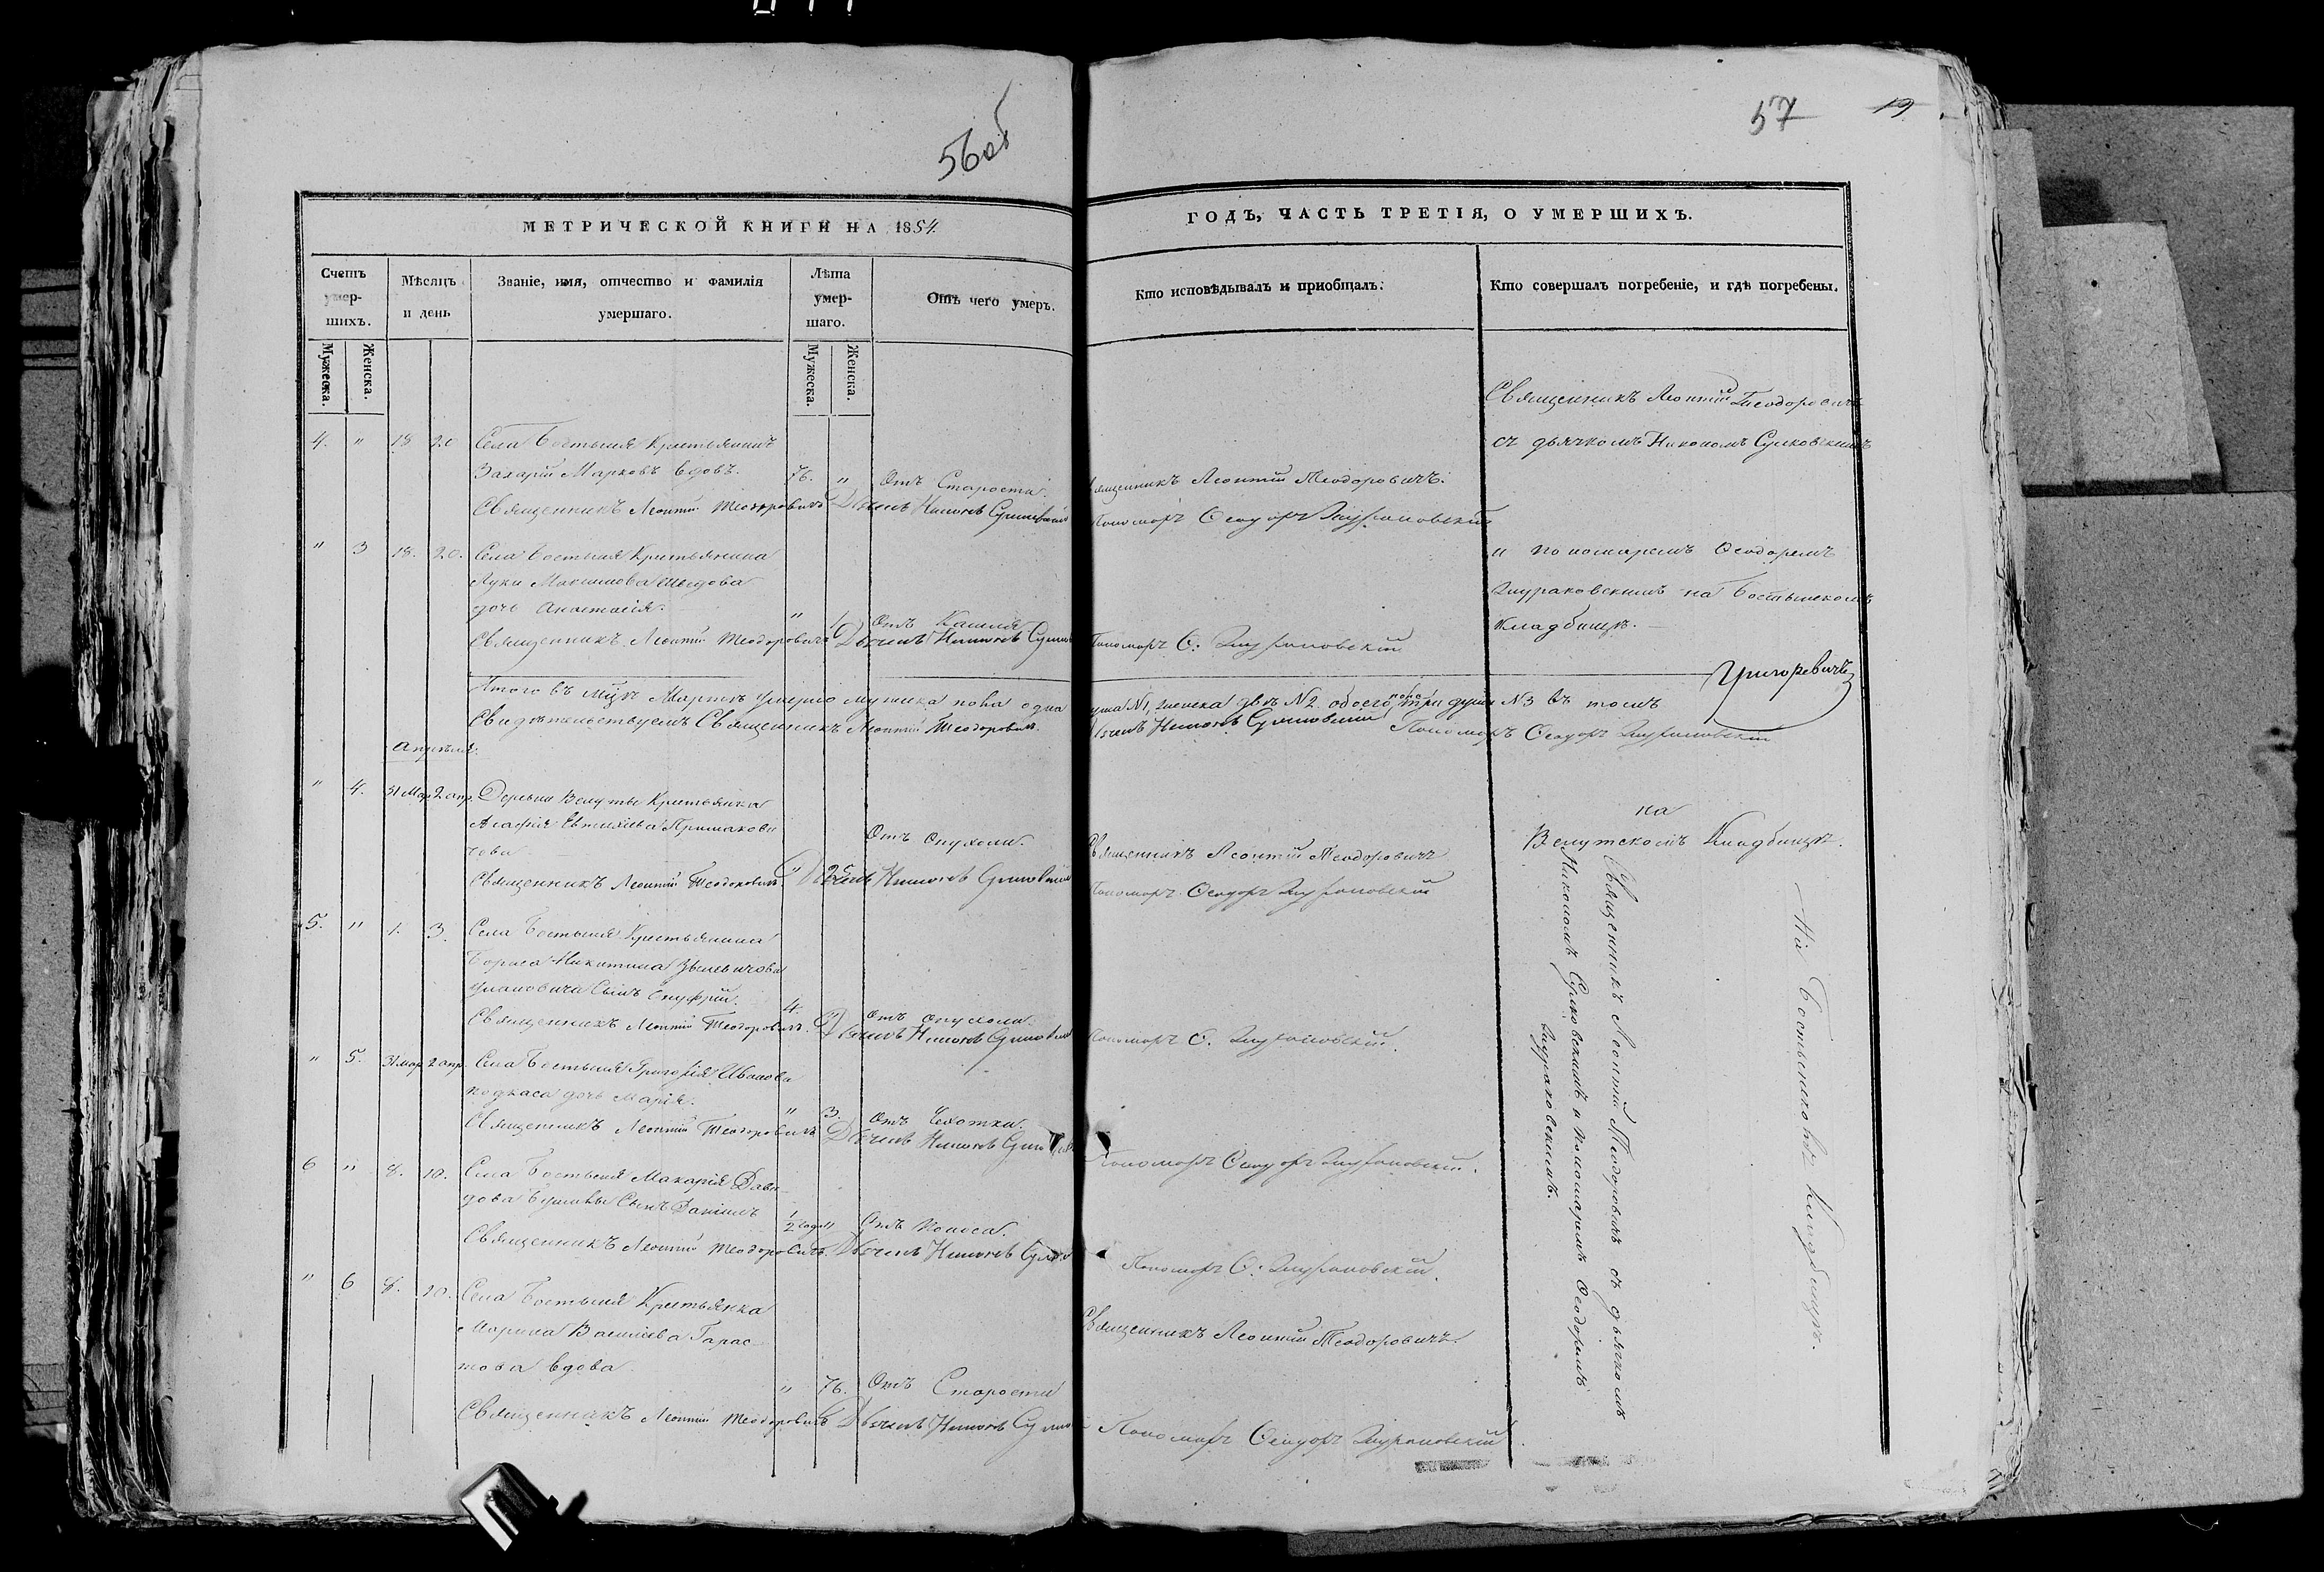 56об
57
19
МЕТРИЧЕСКОЙ КНИГИ НА 1854.
ГОДЪ, ЧАСТЬ ТРЕТІЯ, О УМЕРШИХЪ.
Счетъ умер-шихъ.
Мѣсяцъ и день
Званіе, имя, отчество и фамилія умершаго.
Лѣта умер-шаго.
Отъ чего умеръ.
Кто исповѣдывалъ и пріобщалъ.
Кто совершалъ погребеніе, и гдѣ погребены.
Мужеска.
Женска.
Мужеска.
Женска.
Священникъ Леонтій Теодоровичъ
съ дьячкомъ Никономъ
4. " 18 20 Села Бостыня Крестьянинъ
Захарій Марковъ вдовъ. 76. " Отъ Старости.
Священникъ Леонтій Теодоровичъ.
Священникъ Леонтій Теодоровичъ Дьячекъ Никонъ
Пономарь Ѳеодоръ
" 3 18. 20. Села Бостыня Крестьянина
Луки Максимова
дочь Анастасія. " 1 Отъ Кашля
Священникъ Леонтій Теодоровичъ Дьячекъ Никонъ
Пономарь Ѳ.
и пономаремъ Ѳеодоромъ
на Бостынскомъ
кладбищѣ.
Итого въ мцѣ Мартѣ умерло мужеска пола одна душа №1, женска двѣ №2. обоего пола три души №3 въ томъ
Свидѣтельствуемъ Священникъ Леонтій Теодоровичъ. Дьячекъ Никонъ
Пономарь Ѳеодоръ
Григоревичъ
Апрѣля.
" 4. 31 Мар. 2 апр. Деревни Велуты Крестьянка
Агафія Евтихіева
Отъ Опухоли.
Священникъ Леонтій Теодоровичъ
Священникъ Леонтій Теодоровичъ " 25 Дьячекъ Никонъ
Пономарь Ѳеодоръ
на
Велутскомъ Кладбищѣ.
5. " 1. 3. Села Бостыня Крестьянина
Бориса Никитина
Сынъ Онуфрій. 4. " Отъ опухоли.
Священникъ Леонтій Теодоровичъ. Дьячекъ Никонъ
Пономарь Ѳ.
" 5. 31 мар 2 апр. Села Бостыня Григорія Иванова
дочь Марія. " 3. Отъ Чахотки.
Священникъ Леонтій Теодоровичъ Дьячекъ Никонъ
Пономарь Ѳеодоръ
6 " 8. 10. Села Бостыня Макарія Дави-
дова Сынъ Даніилъ
1/2 года " Отъ Поноса.
Священникъ Леонтій Теодоровичъ. Дьячекъ Никонъ
Пономарь Ѳ.
" 6 8. 10. Села Бостыня Крестьянка
Марина Васильева Тарас-
това вдова. " 76. Отъ Старости
Священникъ Леонтій Теодоровичъ.
Священникъ Леонтій Теодоровичъ Дьячекъ Никонъ
Пономарь Ѳеодоръ
Священникъ Леонтій Теодоровичъ съ дьячкомъ
Никономъ и пономаремъ Ѳеодоромъ
На Бостынскомъ Кладбищѣ.